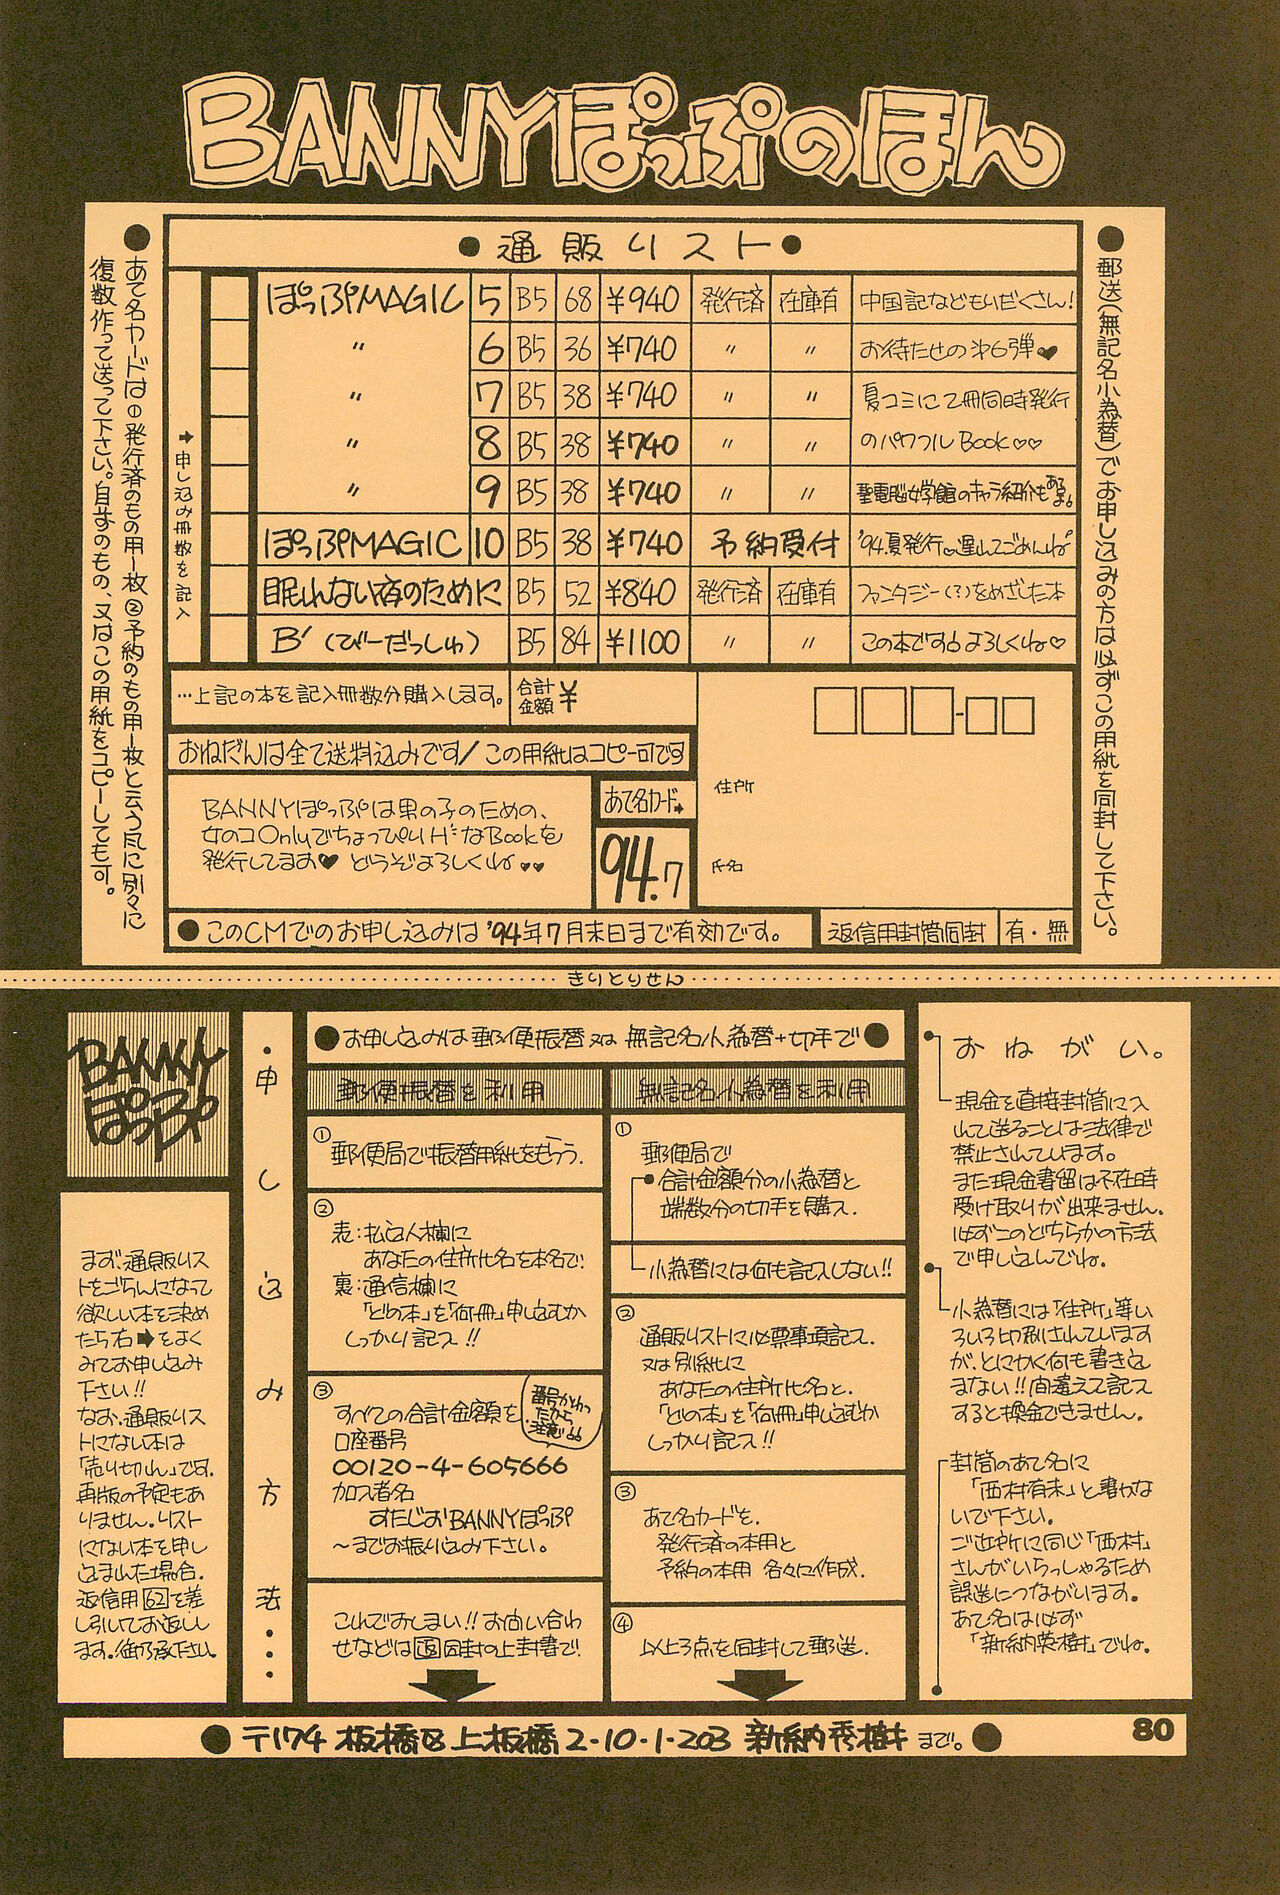 BANNYぽっぷのほん
●通販リスト●
ぽっぷMAGIC 5 B5 68 ¥940 発行済 在庫有 中国記などもりだくさん!
〃 6 B5 36 ¥740 〃 〃 お待たせの第6弾♥
〃 7 B5 38 ¥740 〃 〃 夏コミにて2冊同時発行
〃 8 B5 38 ¥740 〃 〃 のパワフルBook♡♡
〃 9 B5 38 ¥740 〃 〃 聖電脳女学館のキャラ紹介もあるよ。
ぽっぷMAGIC 10 B5 38 ¥740 予約受付 '94.夏発行 遅れてごめんね
眠れない夜のために B5 52 ¥840 発行済 在庫有 ファンタジー(?)をめざした本
B′(びーだっしゅ) B5 84 ¥1100 〃 〃 この本です。よろしくね♡
➡申し込み冊数を記入
…上記の本を記入冊数分購入します。
合計金額 ¥
おねだんは全て送料込みです/この用紙はコピー可です
BANNYぽっぷは男の子のための、
女のコOnlyでちょっぴりHなBookを
発行してます♥ どうぞよろしくね♥♥
あて名カード➡
94.7
住所
氏名
●このCMでのお申し込みは'94年7月末日まで有効です。
返信用封筒同封 有・無
●郵送(無記名小為替)でお申し込みの方は必ずこの用紙を同封して下さい。
●あて名カードは①発行済のもの用1枚②予約のもの用1枚と云う風に別々に
復数作って送って下さい。自ずのもの、又はこの用紙をコピーしても可。
きりとりせん
BANNY
ぽっぷ
まず、通販リス
トをごらんになって
欲しい本を決め
たら右➡をよく
みてお申し込み
下さい!!
なお、通販リス
トにない本は
「売り切れ」です。
再版の予定もあ
りません。リスト
にない本を申し
込まれた場合、
返信用62を差
し引いてお返しし
ます。御了承下さい。
・申し込み方法・・・
●お申し込みは郵便振替又は無記名小為替+切手で●
郵便振替を利用
①
郵便局で振替用紙をもらう.
②
表:払込人欄に
あなたの住所氏名を本名で.
裏:通信欄に
「どの本」を「何冊」申し込むか
しっかり記入!!
③
すべての合計金額を
番号かわったから注意
口座番号
00120-4-605666
加入者名
すたじおBANNYぽっぷ
〜までお振り込み下さい。
これでおしまい!! お問い合わ
せなどは返同封の上封書で.
無記名小為替を利用
①
郵便局で
合計金額分の小為替と
端数分の切手を購入.
小為替には何も記入しない!!
②
通販リストに必要事項記入.
又は別紙に
あなたの住所氏名と.
「どの本」を「何冊」申し込むか
しっかり記入!!
③
あて名カードを.
発行済の本用と
予約の本用 各々に作成.
④
以上3点を同封して郵送.
おねがい。
現金を直接封筒に入
れて送ることは法律で
禁止されています。
また現金書留は不在時
受け取りが出来ません。
必ずこのどちらかの方法
で申し込んでね。
小為替には「住所」等い
ろいろ印刷されています
が、とにかく何も書き込
まない!!間違えて記入
すると換金できません。
封筒のあて名に
「西村有未」と書かな
いで下さい。
ご近所に同じ「西村」
さんがいらっしゃるため
誤送につながります。
あて名は必ず
「新納英樹」でね。
●〒174 板橋区上板橋2-10-1-203 新納秀樹 まで。●
80